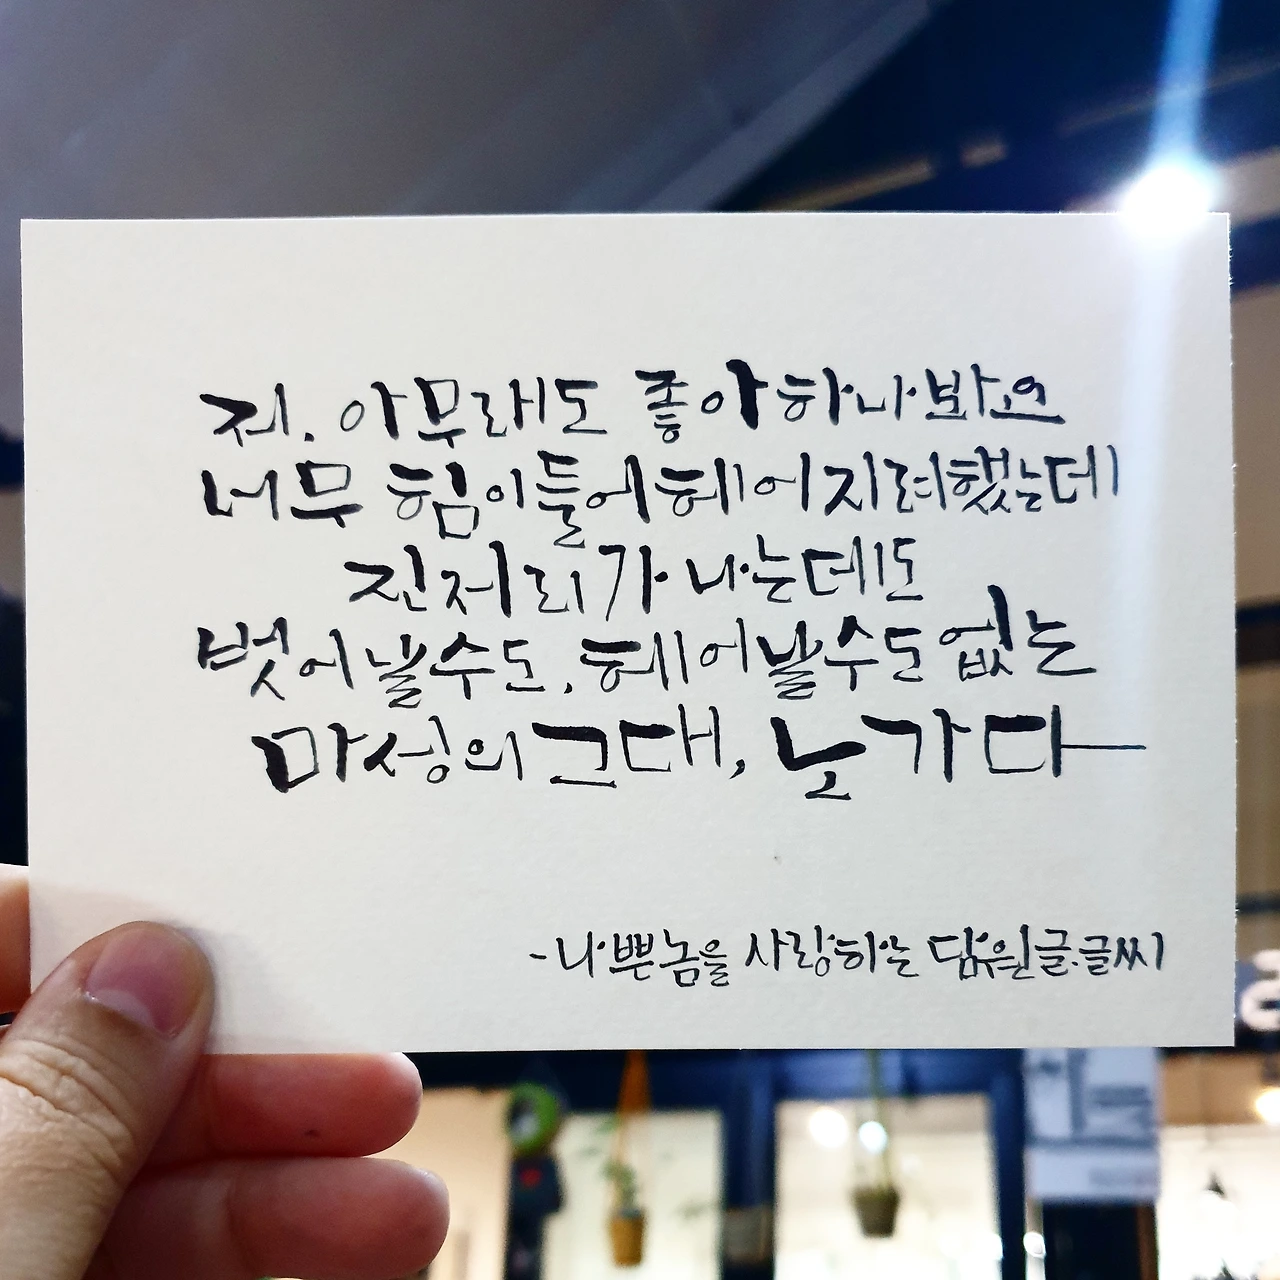 저. 아무래도 좋아하나봐요
너무 힘이들어 헤어지려했는데
진저리가 나는데도
벗어날수도, 헤어날수도 없는
마성의 그대, 노가다
-나쁜놈을 사랑하는 담원글.글씨